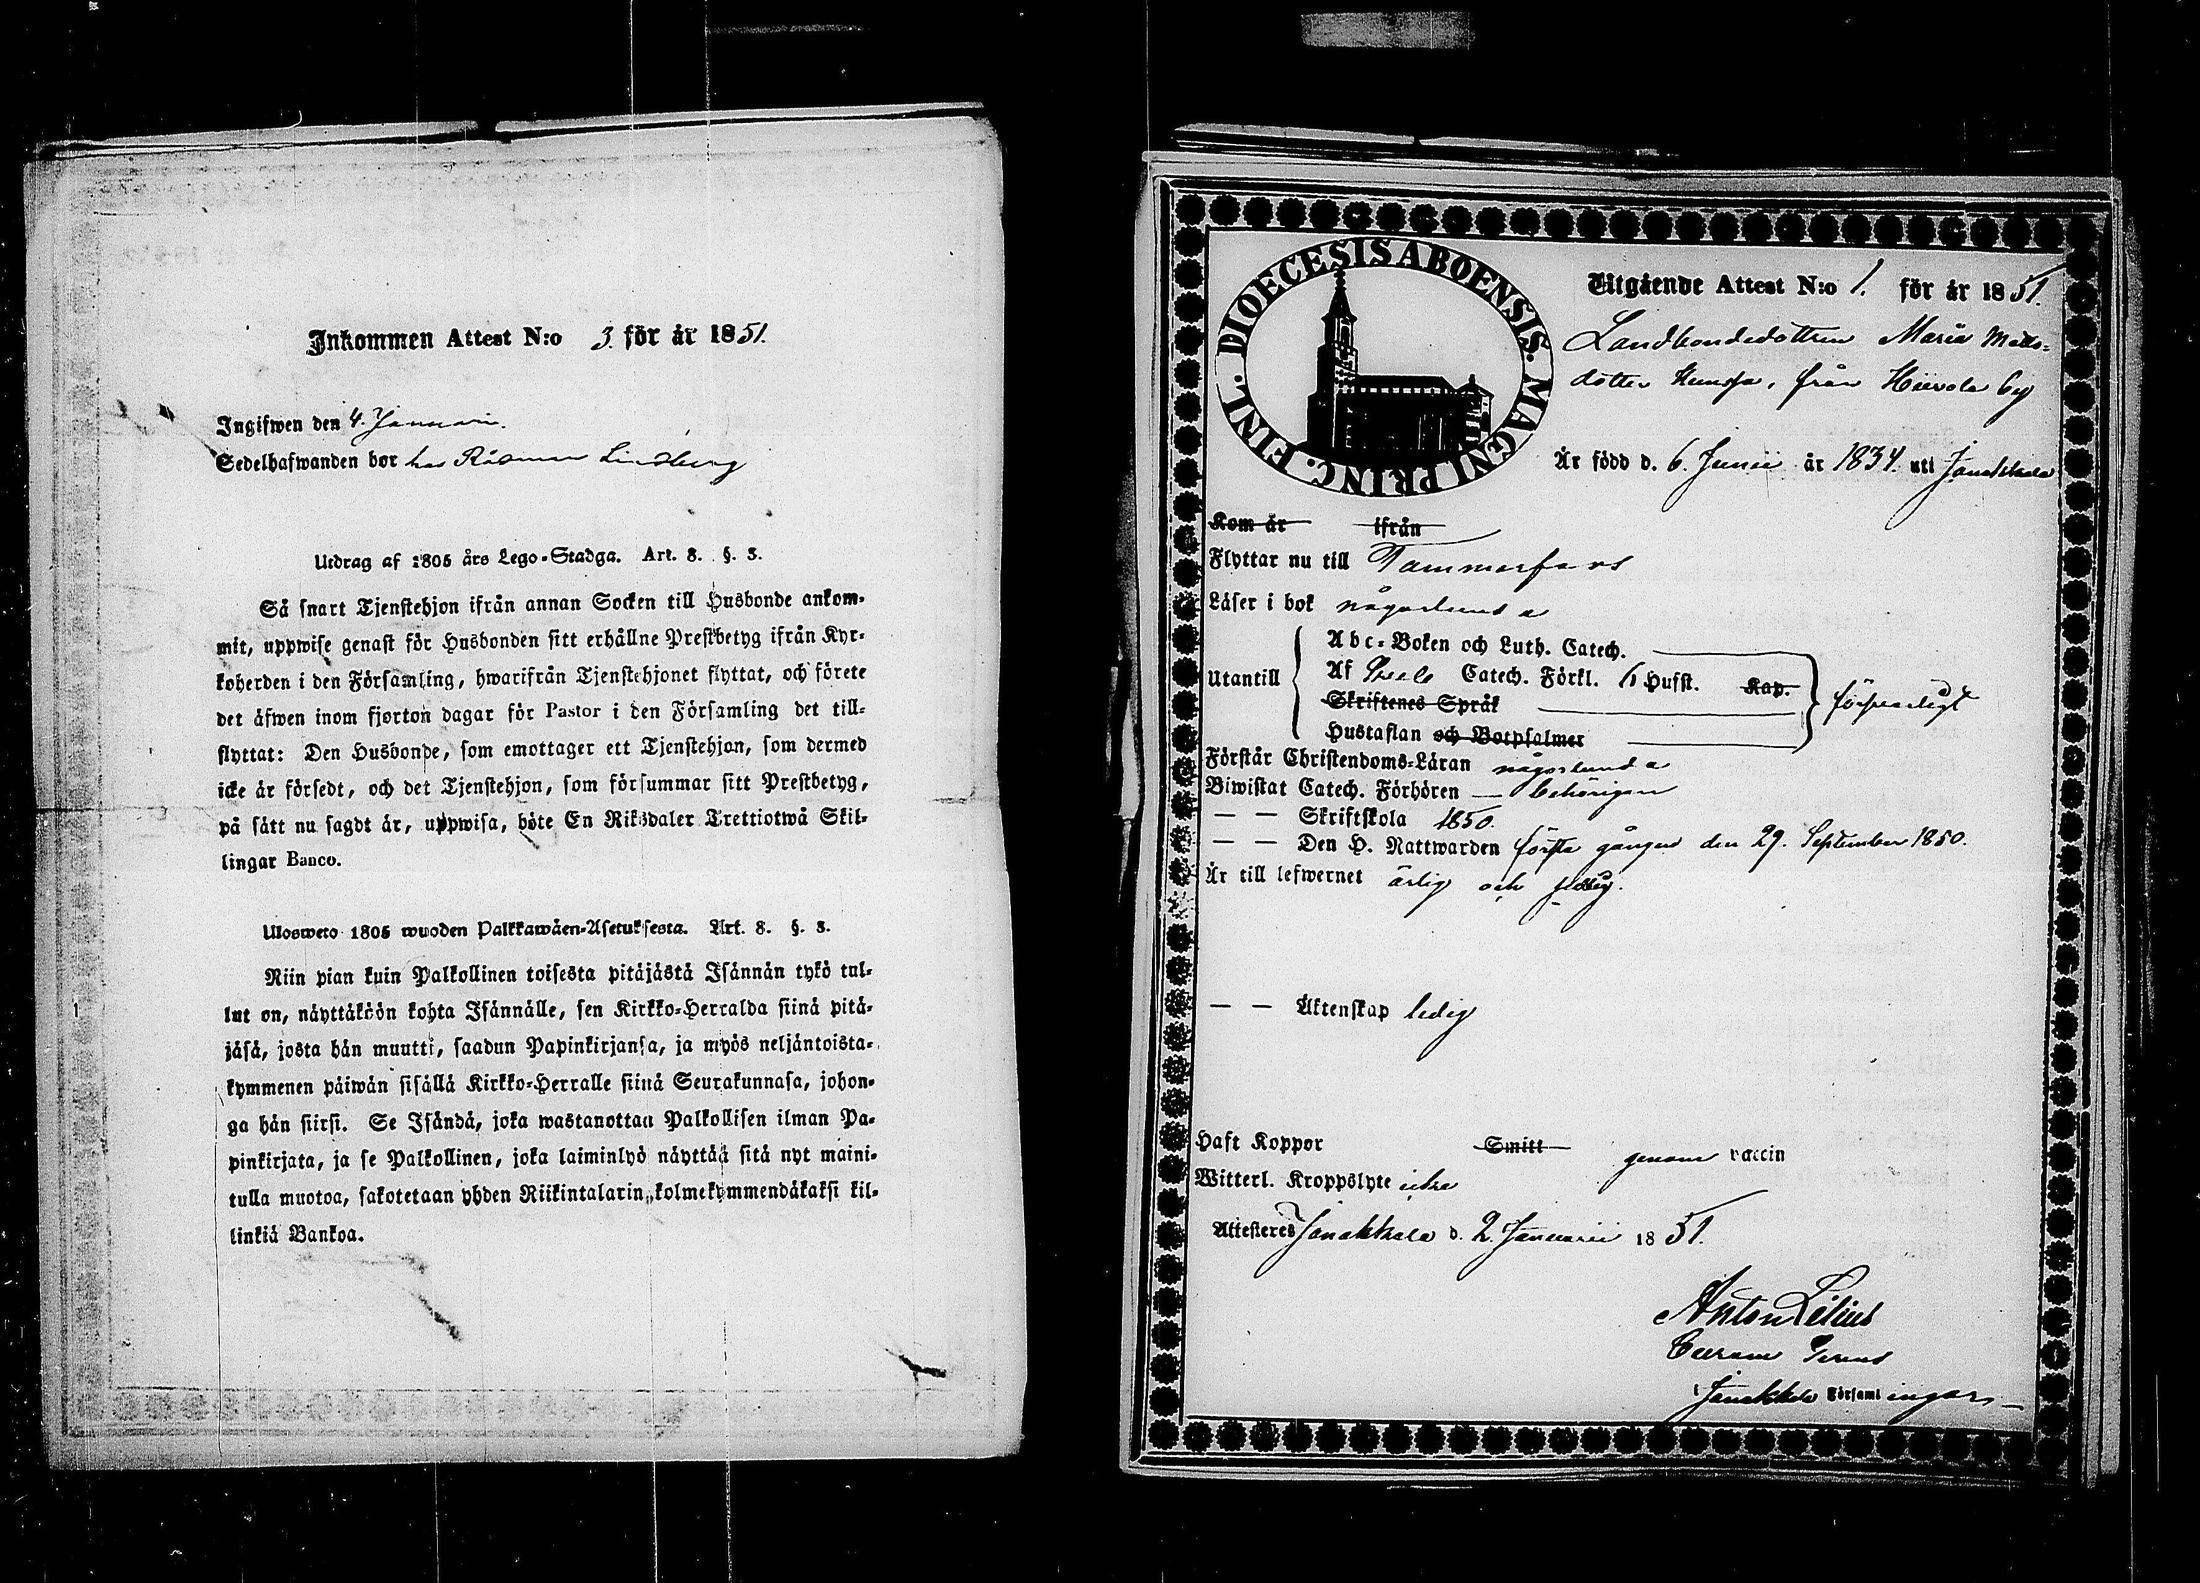 Inkommen Attest N:o 3. för år 1851.
Ingifwen den 4. Januari.
Sedelhafwanden bor hos Rådman Lindberg
Utdrag af 1805 års Lego-Stadga. Art. 8. §. 3.
Så snart Tjenstehjon ifrån annan Socken till Husbonde ankom-
mit, uppwise genast för Husbonden sitt erhållne Prestbetyg ifrån Kyr-
koherden i den Församling, hwarifrån Tjenstehjonet flyttat, och förete
det äfwen inom fjorton dagar för Pastor i den Församling det till-
flyttat: Den Husbonde, som emottager ett Tjenstehjon, som dermed
icke är försedt, och det Tjenstehjon, som försummar sitt Prestbetyg,
på sätt nu sagdt är, uppwisa, böte En Riksdaler Trettiotwå Skil-
lingar Banco.
Ulosweto 1805 wuoden Palkkawäen-Asetuksesta. Art. 8. §. 3.
Niin pian kuin Palkollinen toisesta pitäjästä Isännän tykö tul-
lut on, näyttäköön kohta Isännälle, sen Kirkko-Herralda siinä pitä-
jäsä, josta hän muutti, saadun Papinkirjansa, ja myös neljäntoista-
kymmenen päiwän sisällä Kirkko-Herralle siinä Seurakunnasa, johon-
ga hän siirsi. Se Isändä, joka wastanottaa Palkollisen ilman Pa-
pinkirjata, ja se Palkollinen, joka laiminlyö näyttää sitä nyt maini-
tulla muotoa, sakotetaan yhden Riikintalarin, kolmekymmendäkaksi kil-
linkiä Bankoa.
DIOECESIS ABOENSIS. MAGNI PRINC. FINL.
Utgående Attest N:o 1. för år 1851.
Landbondedottren Maria Matts-
dotter, från Hiivola by
Är född d. 6. Junii år 1834. uti Janakkala
Kom år ifrån
Flyttar nu till Tammerfors
Läser i bok någorlunda
Utantill
Abc-Boken och Luth. Catech.
Af Catech. Förkl. 6 Hufst. Kap.
Skriftenes Språk
Hustaflan och Botpsalmer
försvarligt
Förstår Christendoms-Läran någorlunda
Biwistat Catech. Förhören — behörigen
— — Skriftskola 1850.
— — Den H. Nattwarden första gången den 29. September 1850.
Är till lefwernet ärlig och flitig.
— — Äktenskap ledig
Haft Koppor Smitt genom vaccin
Witterl. Kroppslyte icke
Attesteres Janakkala d. 2. Januarii 1851.
Anton Lilius
i Janakkala Församlingar